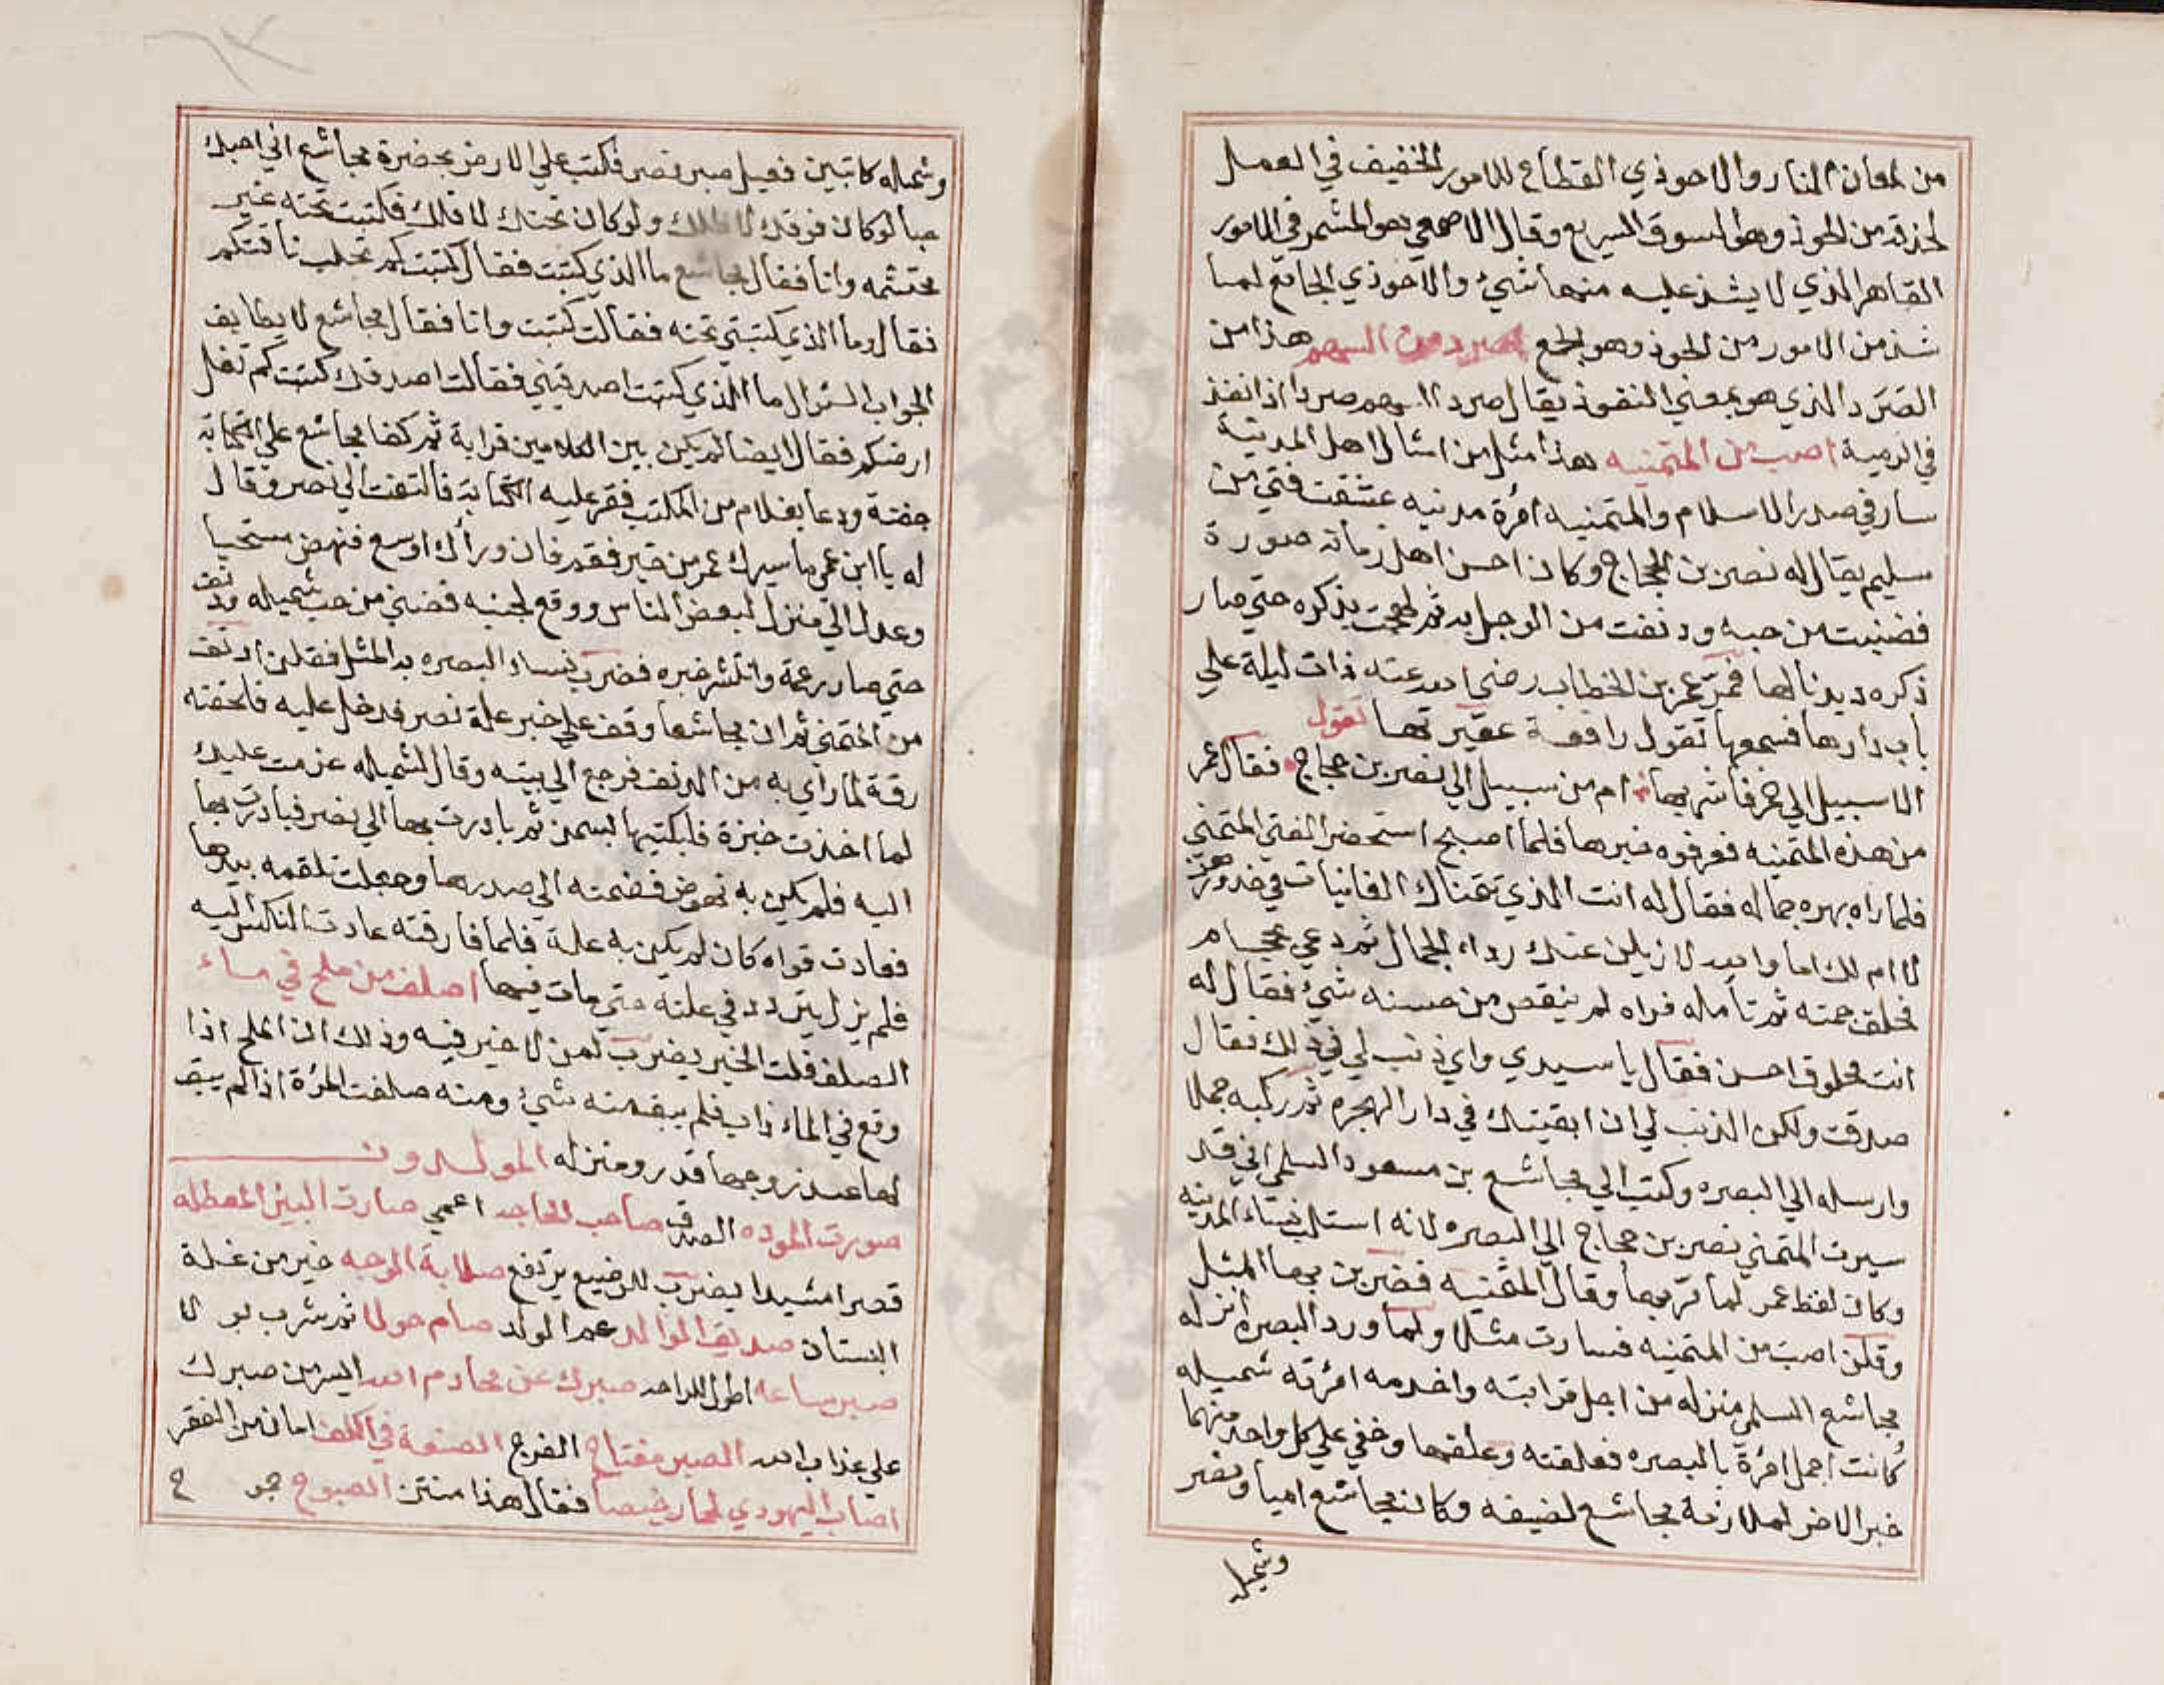 من لمعان النار والاحوذي القطاع للامور الخفيف في العمل
لحذقه من الحوذ وهو السوق السريع وقال الاصمعي هو المشمر في الامور
القاهر الذي لا يشذ عليه منها شيء والاحوذي الجامع لما
شذ من الامور من الحوذ وهو الجمع اصرد من السهم هذا من
الصرد الذي هو بمعني النفوذ يقال صرد السهم صردا اذا نفذ
في الرمية اصب من المتمنيه هذا مثل من امثال اهل المدينة
سار في صدر الاسلام والمتمنيه امرة مدنيه عشقت فتي من
سليم يقال له نصر بن الحجاج وكان احسن اهل زمانه صورة
فضنيت من حبه ودنفت من الوجد به ثم لهجت بذكره حتي صار
ذكره ديدنا لها فمر عمر بن الخطاب رضي الله عنه ذات ليلة علي
باب دارها فسمعها تقول رافعة عقيرتها تقول
الا سبيل الي خمر فاشربها ام من سبيل الي نصر بن حجاج فقال عمر
من هذه المتمنيه فعرفوه خبرها فلما اصبح استحضر الفتي المتمني
فلما راه بهره جماله فقال له انت الذي تتمناك الغانيات في خدورهن
لا ام لك اما والله لازيلن عنك رداء الجمال ثم دعي بحجام
فحلق جمته ثم تأمله فراه لم ينقص من حسنه شيء فقال له
انت محلوق احسن فقال يا سيدي واي ذنب لي في ذلك فقال
صدقت ولكن الذنب لي ان ابقيتك في دار الهجره ثم ركبه جملا
وارسله الي البصره وكتب الي مجاشع بن مسعود السلمي اني قد
سيرت المتمني نصر بن حجاج الي البصره لانه استلب نساء المدينه
وكان لفظ عمر لما مر بها وقال المتمنيه فضربن بها المثل
وقلن اصب من المتمنيه فسارت مثلا ولما ورد البصره انزله
مجاشع السلمي منزله من اجل قرابته واخدمه امرته شميله
كانت اجمل امرة بالبصره فعلقته وعلقها وخفي علي كل واحد منهما
خبر الاخر لملازمة مجاشع لضيفه وكان مجاشع اميا ونصر
وشميله
وشميله كاتبين فعيل صبر نصر فكتب علي الارض بحضرة مجاشع اني احبك
حبا لو كان فوقك لاظلك ولو كان تحتك لاقلك فكتبت تحته غير
محتشمه وانا فقال مجاشع ما الذي كتبت فقال كتبت كم تحلب ناقتكم
فقال وما الذي كتبتي تحته فقالت كتبت وانا فقال مجاشع لا يطابق
الجواب السئوال ما الذي كتبت اصدقيني فقالت اصدقك كتبت كم تغل
ارضكم فقال ايضا لم يكن بين الكلامين قرابة ثم كفا مجاشع علي الكتابة
جفنة ودعا بغلام من المكتب فقرء عليه الكتابة فالتفت الي نصر وقال
له يا ابن عمي ما سيرك عمر من خير فقم فان ورأك اوسع فنهض مستحيا
وعدل الي منزل لبعض الناس ووقع لجنبه فضني من حب شميله ودنف
حتي صار رحمة وانتشر خبره فضرب نساء البصره به المثل فقلن ادنف
من المتمني ثم ان مجاشعا وقف علي خبر علة نصر فدخل عليه فلحقته
رقة لما راي به من الدنف فرجع الي بيته وقال لشميله عزمت عليك
لما اخذت خبزة فلبكتيها بسمن ثم بادرت بها الي نصر فبادرت بها
اليه فلم يكن به نهوض فضمته الي صدرها وجعلت تلقمه بيدها
فعادت قواه كان لم يكن به علة فلما فارقته عادت النكس اليه
فلم يزل يتردد في علته حتي مات فيها اصلف من ملح في ماء
الصلف قلت الخير يضرب لمن لا خير فيه وذلك ان الملح اذا
وقع في الماء ذاب فلم يبق منه شيء ومنه صلفت المرٔة اذا لم يبق
لها عند زوجها قدر ومنزله المولدون
صورت الموده الصدق صاحب الحاجه اعمي صارت البئر المعطله
قصرا مشيدا يضرب للوضيع يرتفع صلابة الوجه خير من غلة
البستان صديق الوالد عم الولد صام حولا ثم شرب بولا
صبر ساعه اطول للراحه صبرك عن محارم الله ايسر من صبرك
علي عذاب الله الصبر مفتاح الفرج الصنعة في الكف امان من الفقر
اصاب اليهودي لحما رخيصا فقال هذا منتن الصبوح جموح